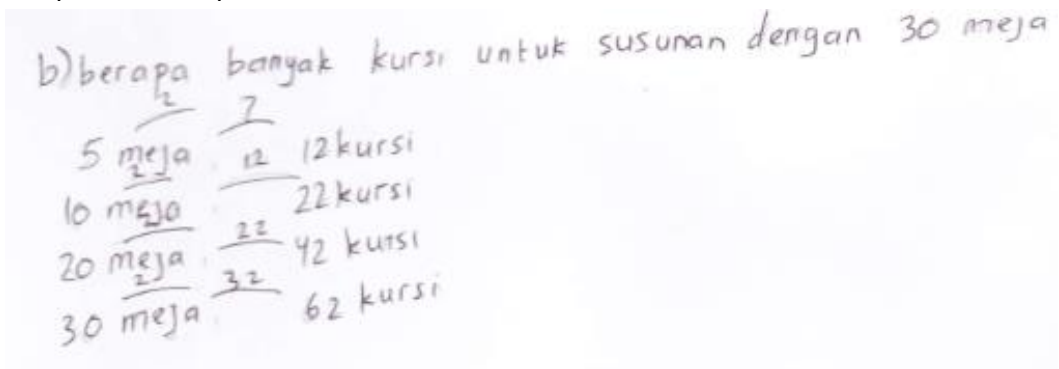 b) berapa banyak kursi untuk susunan dengan 30 meja
2 7
5 meja 12 kursi
2 12
10 meja 22 kursi
2 22
20 meja 42 kursi
2 32
30 meja 62 kursi